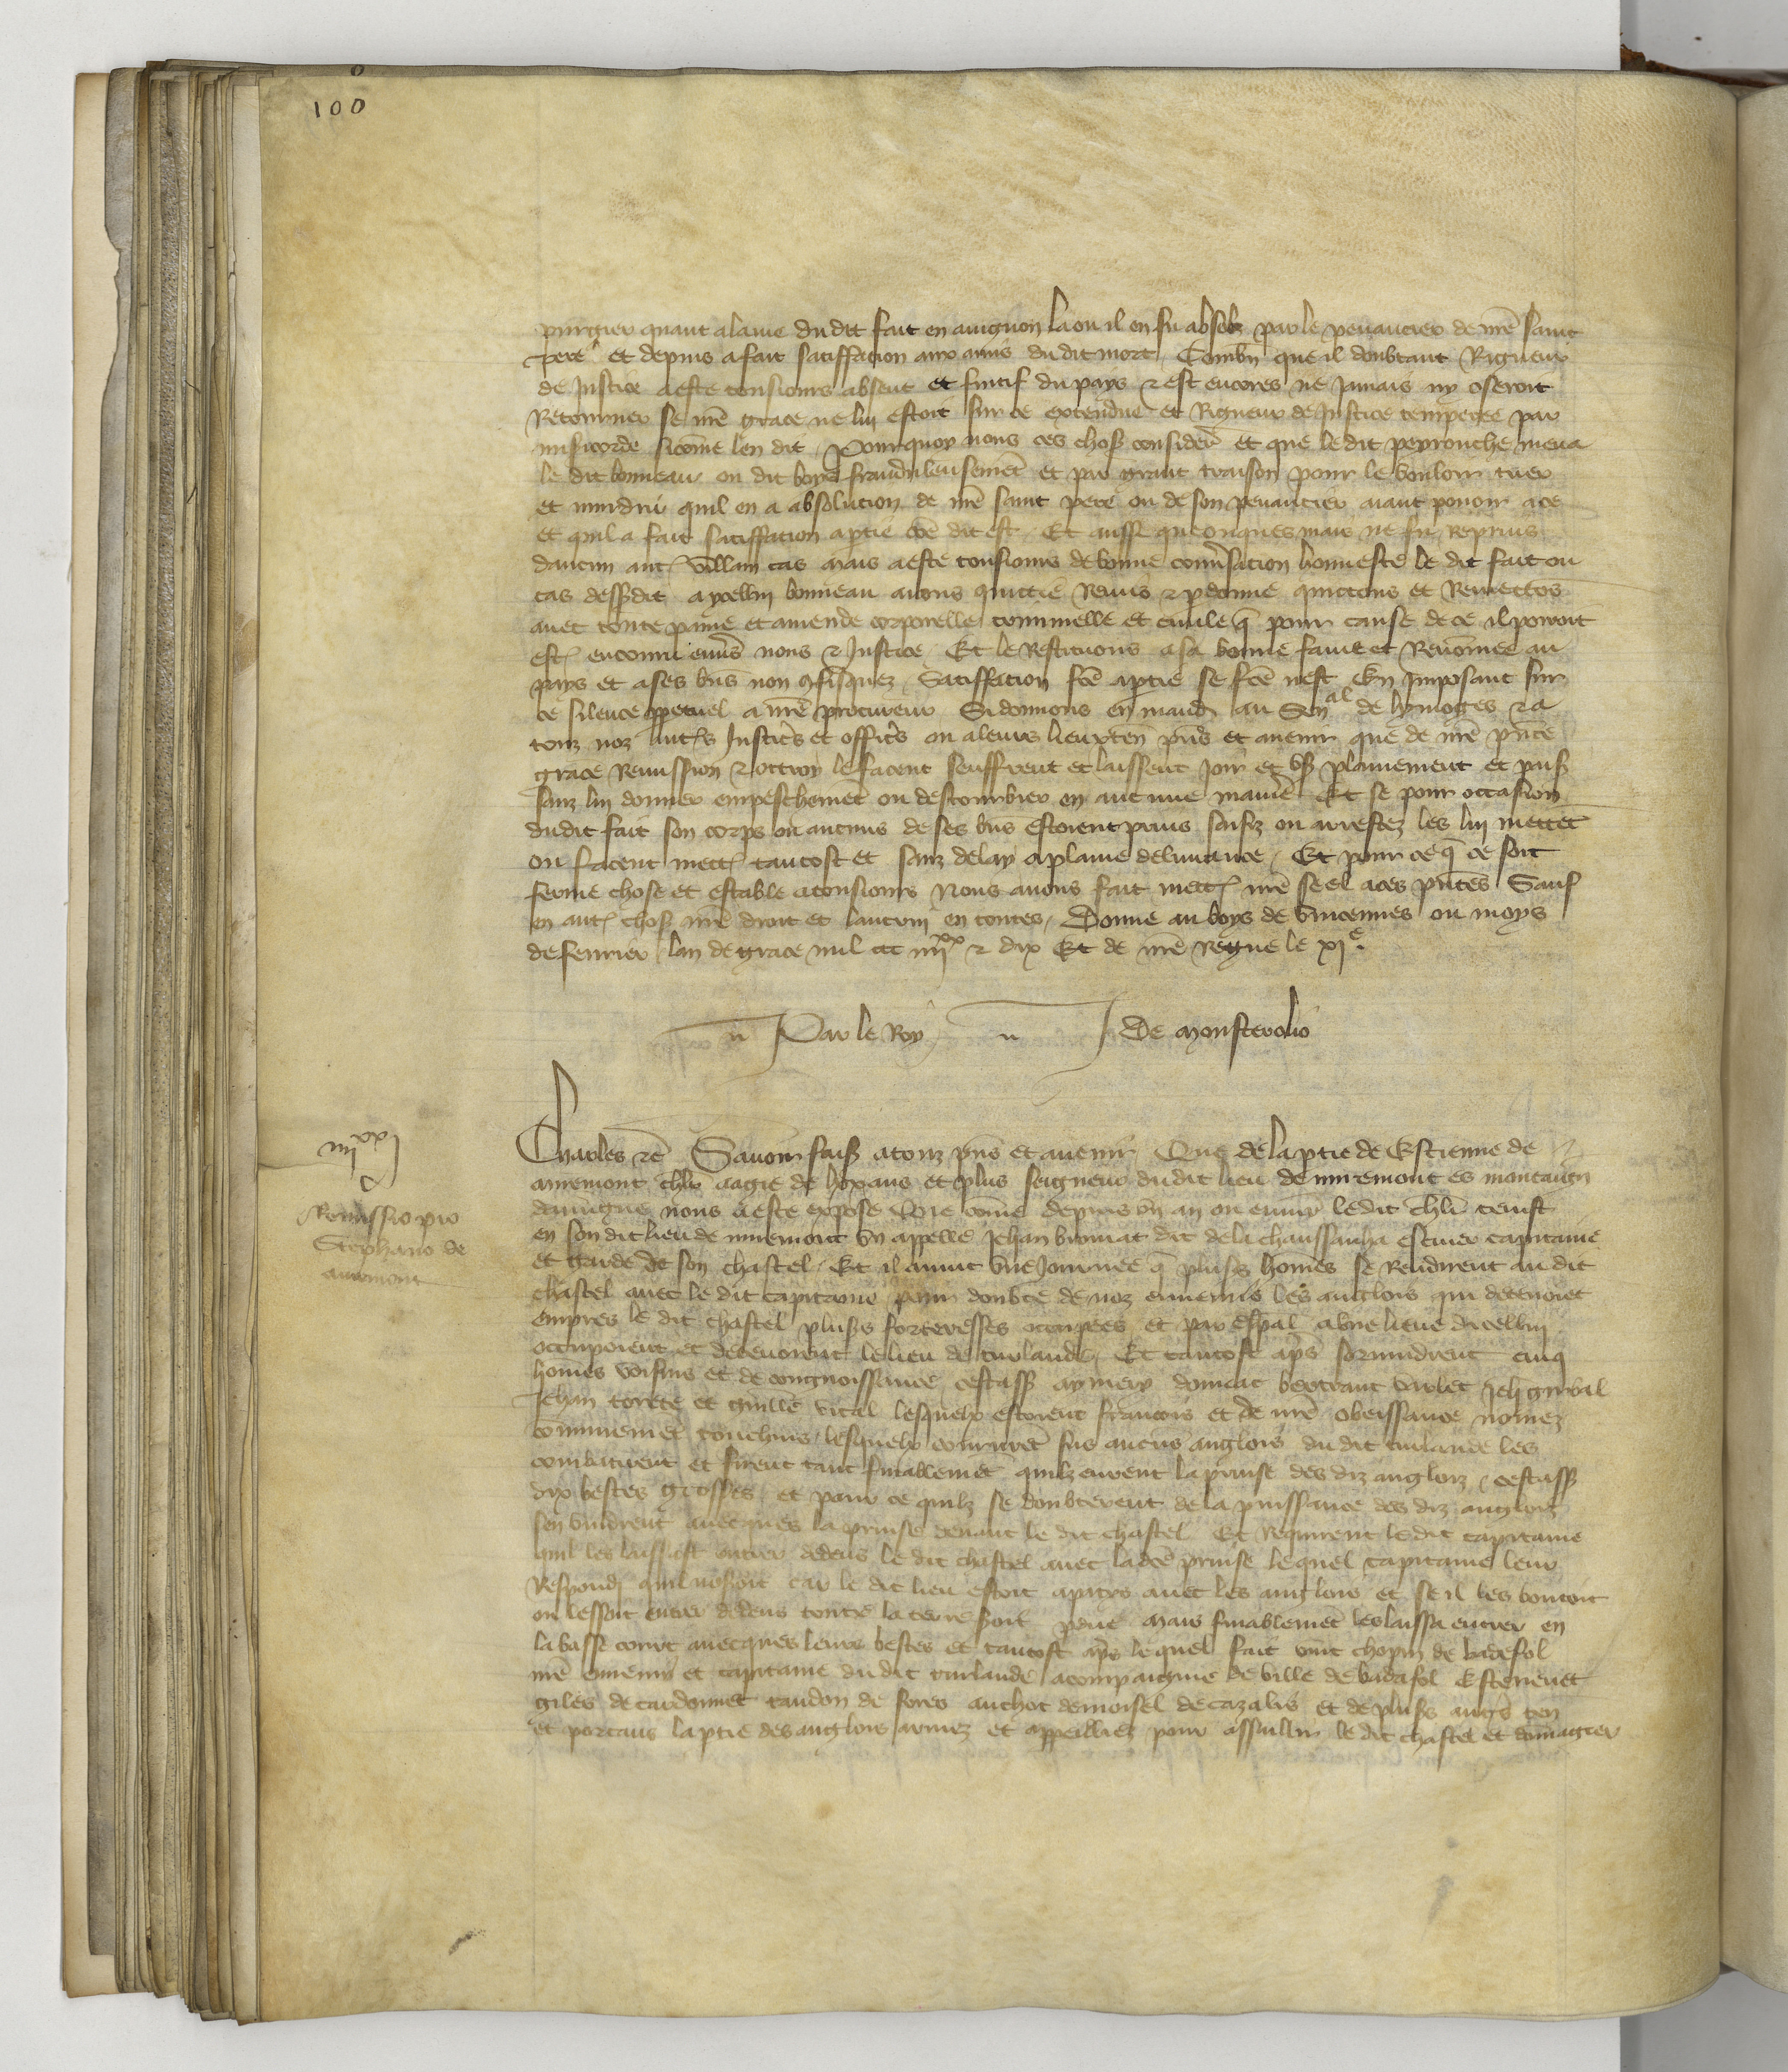 100
purgier quant a lame du dit fait en avignon la ou il en fu absolz par le penancier de nre saint
pere et depuis a fait satiffacion aux amis du dit mort, Combn que il doubtant Rigueur
de Justice a este tousiours absent et fuitif du pays & est encores ne Jamais ny oseroit
Retourner se nre grace ne lui estoit sur ce extendue et Rigueur de Justice temperee par
misicorde sicome len dit, Pourquoy nous ces chos consider Et que le dit peyrouche mena
le dit bonneau ou dit boys frauduleusemet et par grant traison pour le vouloir tuer
et murdrir quil en a absolucion de nre saint pere ou de son penancier aiant pouoir a ce
et quil a fait satiffacion a ptie coe dit est, Et aussi que onques mais ne fu Reprins
daucun autr villain cas mais a este tousiours de bonne conusacion honneste le dit fait ou
cas dessusdit a ycellui bonneau avons quictie Remis & pdonne quictons et Remectos
avec toute paine et amende corporelle criminelle et civile q pour cause de ce il pouroit
estr encouru envs nous & Justice, Et le Restituons a sa bonne fame et Renomee au
pays et a ses bns non confisquez, Satiffacion fce a ptie se fce nest, En Imposant sur
ce silence ppetuel a nre procureur, Si donnons en mand au Senal de lymoges & a
touz noz autrs Justiciers et officiers ou a leurs lieuxten pns et avenir que de nre pnte
grace Remission & ottroy le facent seuffrent et laissent Joir et us plainement et paisi
sanz lui donner empeschemet ou destourbier en aucune manie Et se pour occasion
dudit fait son corps ou aucuns de ses bns estoient prins saisiz ou arrestez les lui mettet
ou facent mettr tantost et sanz delay a plaine delivrance, Et pour ce q ce soit
ferme chose et estable a tousiours Nous avons fait mettr nre seel a ces pntes Sauf
en autr chos nre droit et lautruy en toutes, Donne au boys de vincennes ou moys
de fevrier lan de grace mil ccc iiiixx & dix Et de nre Regne le xie.
Par le Roy J De monsterolio
iiiixx j
Remissio pro
Stephano de
auremont
Charles &c Savoir fais a touz pns et avenir Que de la ptie de Estienne de
auremont chlr aagie de lx ans et plus seigneur du dit lieu de miremont es montaign
dauvgne nous a este expose Que come depuis un an ou environ ledit chlr tenist
en son dit lieu de miremont un appelle Jehan brumat dit de la chaussanha escuier capitaine
et garde de son chastel, Et il avint une Journee q plusrs homes se Rendirent au dit
chastel avec le dit capitaine pour doubte de noz ennemis les anglois qui detenoiet
empres le dit chastel plusrs forteresses occupees et par espal a une lieue dicellui
occupoient et detenoient le lieu de turlande, Et tantost aps sorvindrent cinq
homes voisins et de congnoissance cestass aymery domat bertrant varlet Jeh girbal
Jehan torete et guille vital lesquelx estoient francois et de nre obeissance nomez
comunemet touchins, lesquelx coururet sus aucus anglois du dit turlande les
combatirent et firent tant finablemet quilz eurent la prinse des diz anglois, cestass
dix bestes grosses, et pour ce quilz se doubterent de la puissance des diz anglois
sen vindrent avecques la prinse devant le dit chastel Et Requirent le dit capitaine
quil les laissast entrer dedens le dit chastel avec la dce prinse lequel capitaine leur
Respondi quil noseroit car le dit lieu estoit apatis avec les anglois et se il les boutoit
ou lessoit entrer dedens toute la terre seroit pdue mais finablemet les laissa entrer en
la basse court avecques leurs bestes et tantost aps lequel fait vint chopin de badefol
nre ennemi et capitaine du dit turlande acompaignie de ville de badafol Estevenet
giles de cardonnet taudon de fores anchot demoisel de cazalis et de plusrs augs ten
et portans la ptie des anglois armez et appeilliez pour assaillir le dit chastel et domagier